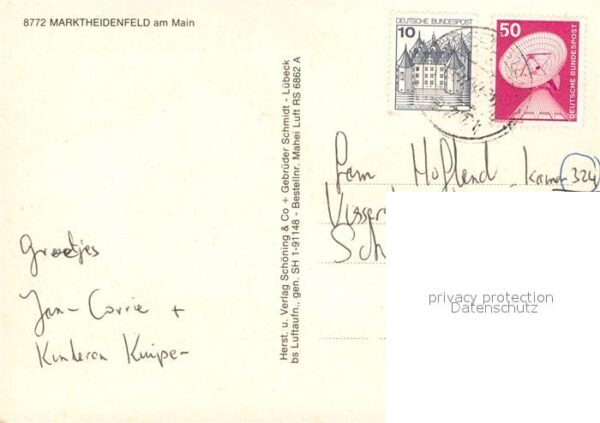 8772 MARKTHEIDENFELD am Main
DEUTSCHE BUNDESPOST
10
50
DEUTSCHE BUNDESPOST
Herst. u. Verlag Schöning & Co + Gebrüder Schmidt - Lübeck
bs Luftaufn., gen. SH 1-91148 - Bestellnr. Mahei Luft RS 6862 A
Fam Hofland - kamer 324
Visser
Sch
privacy protection
Datenschutz
Groetjes
Jan - Corrie +
Kinderen Kuiper